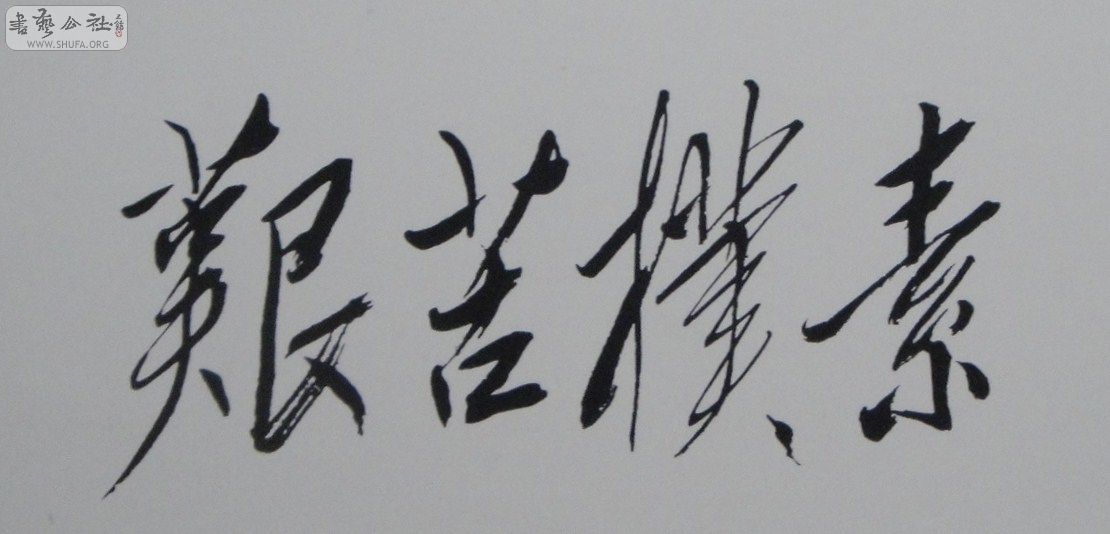 書藝公社
WWW.SHUFA.ORG
艱苦樸素